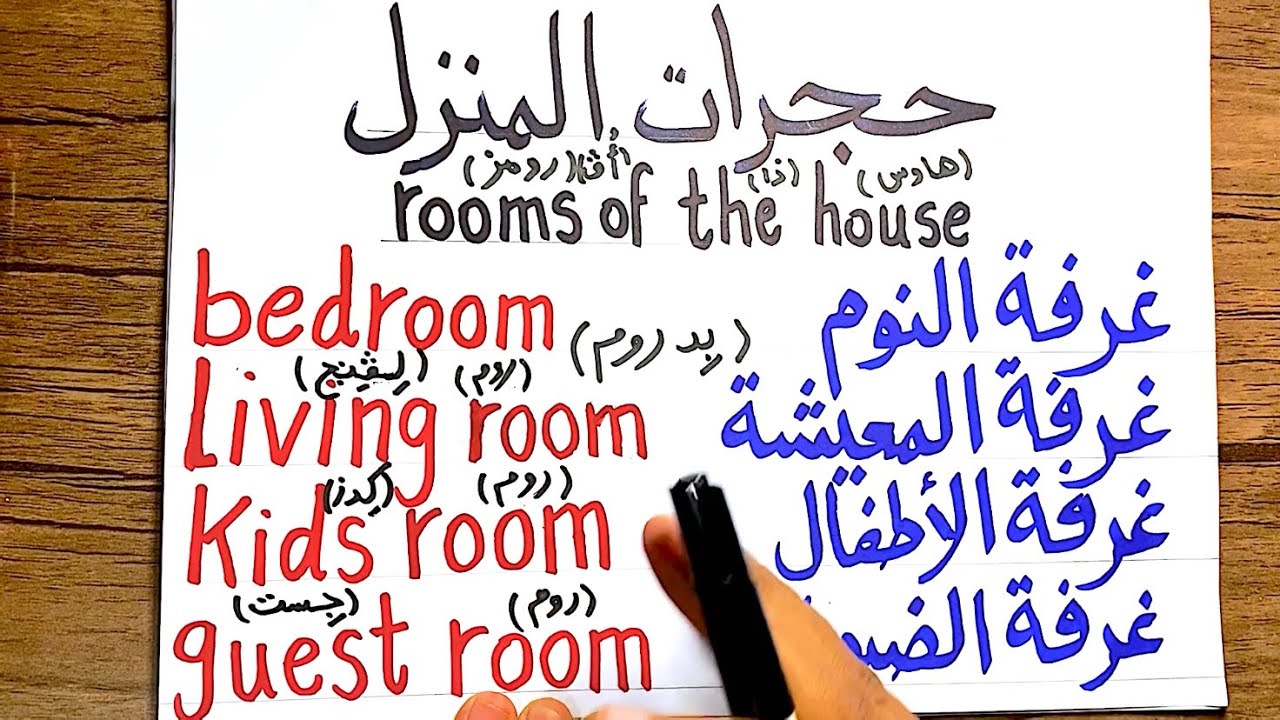 حجرات المنزل
(رومز) (أُڤ) (ذا) (هاوس)
rooms of the house
bedroom (بِد روم) غرفة النوم
(لِيڤِينج) (روم)
Living room غرفة المعيشة
(كِدز) (روم)
Kids room غرفة الأطفال
(جِست) (روم)
guest room غرفة